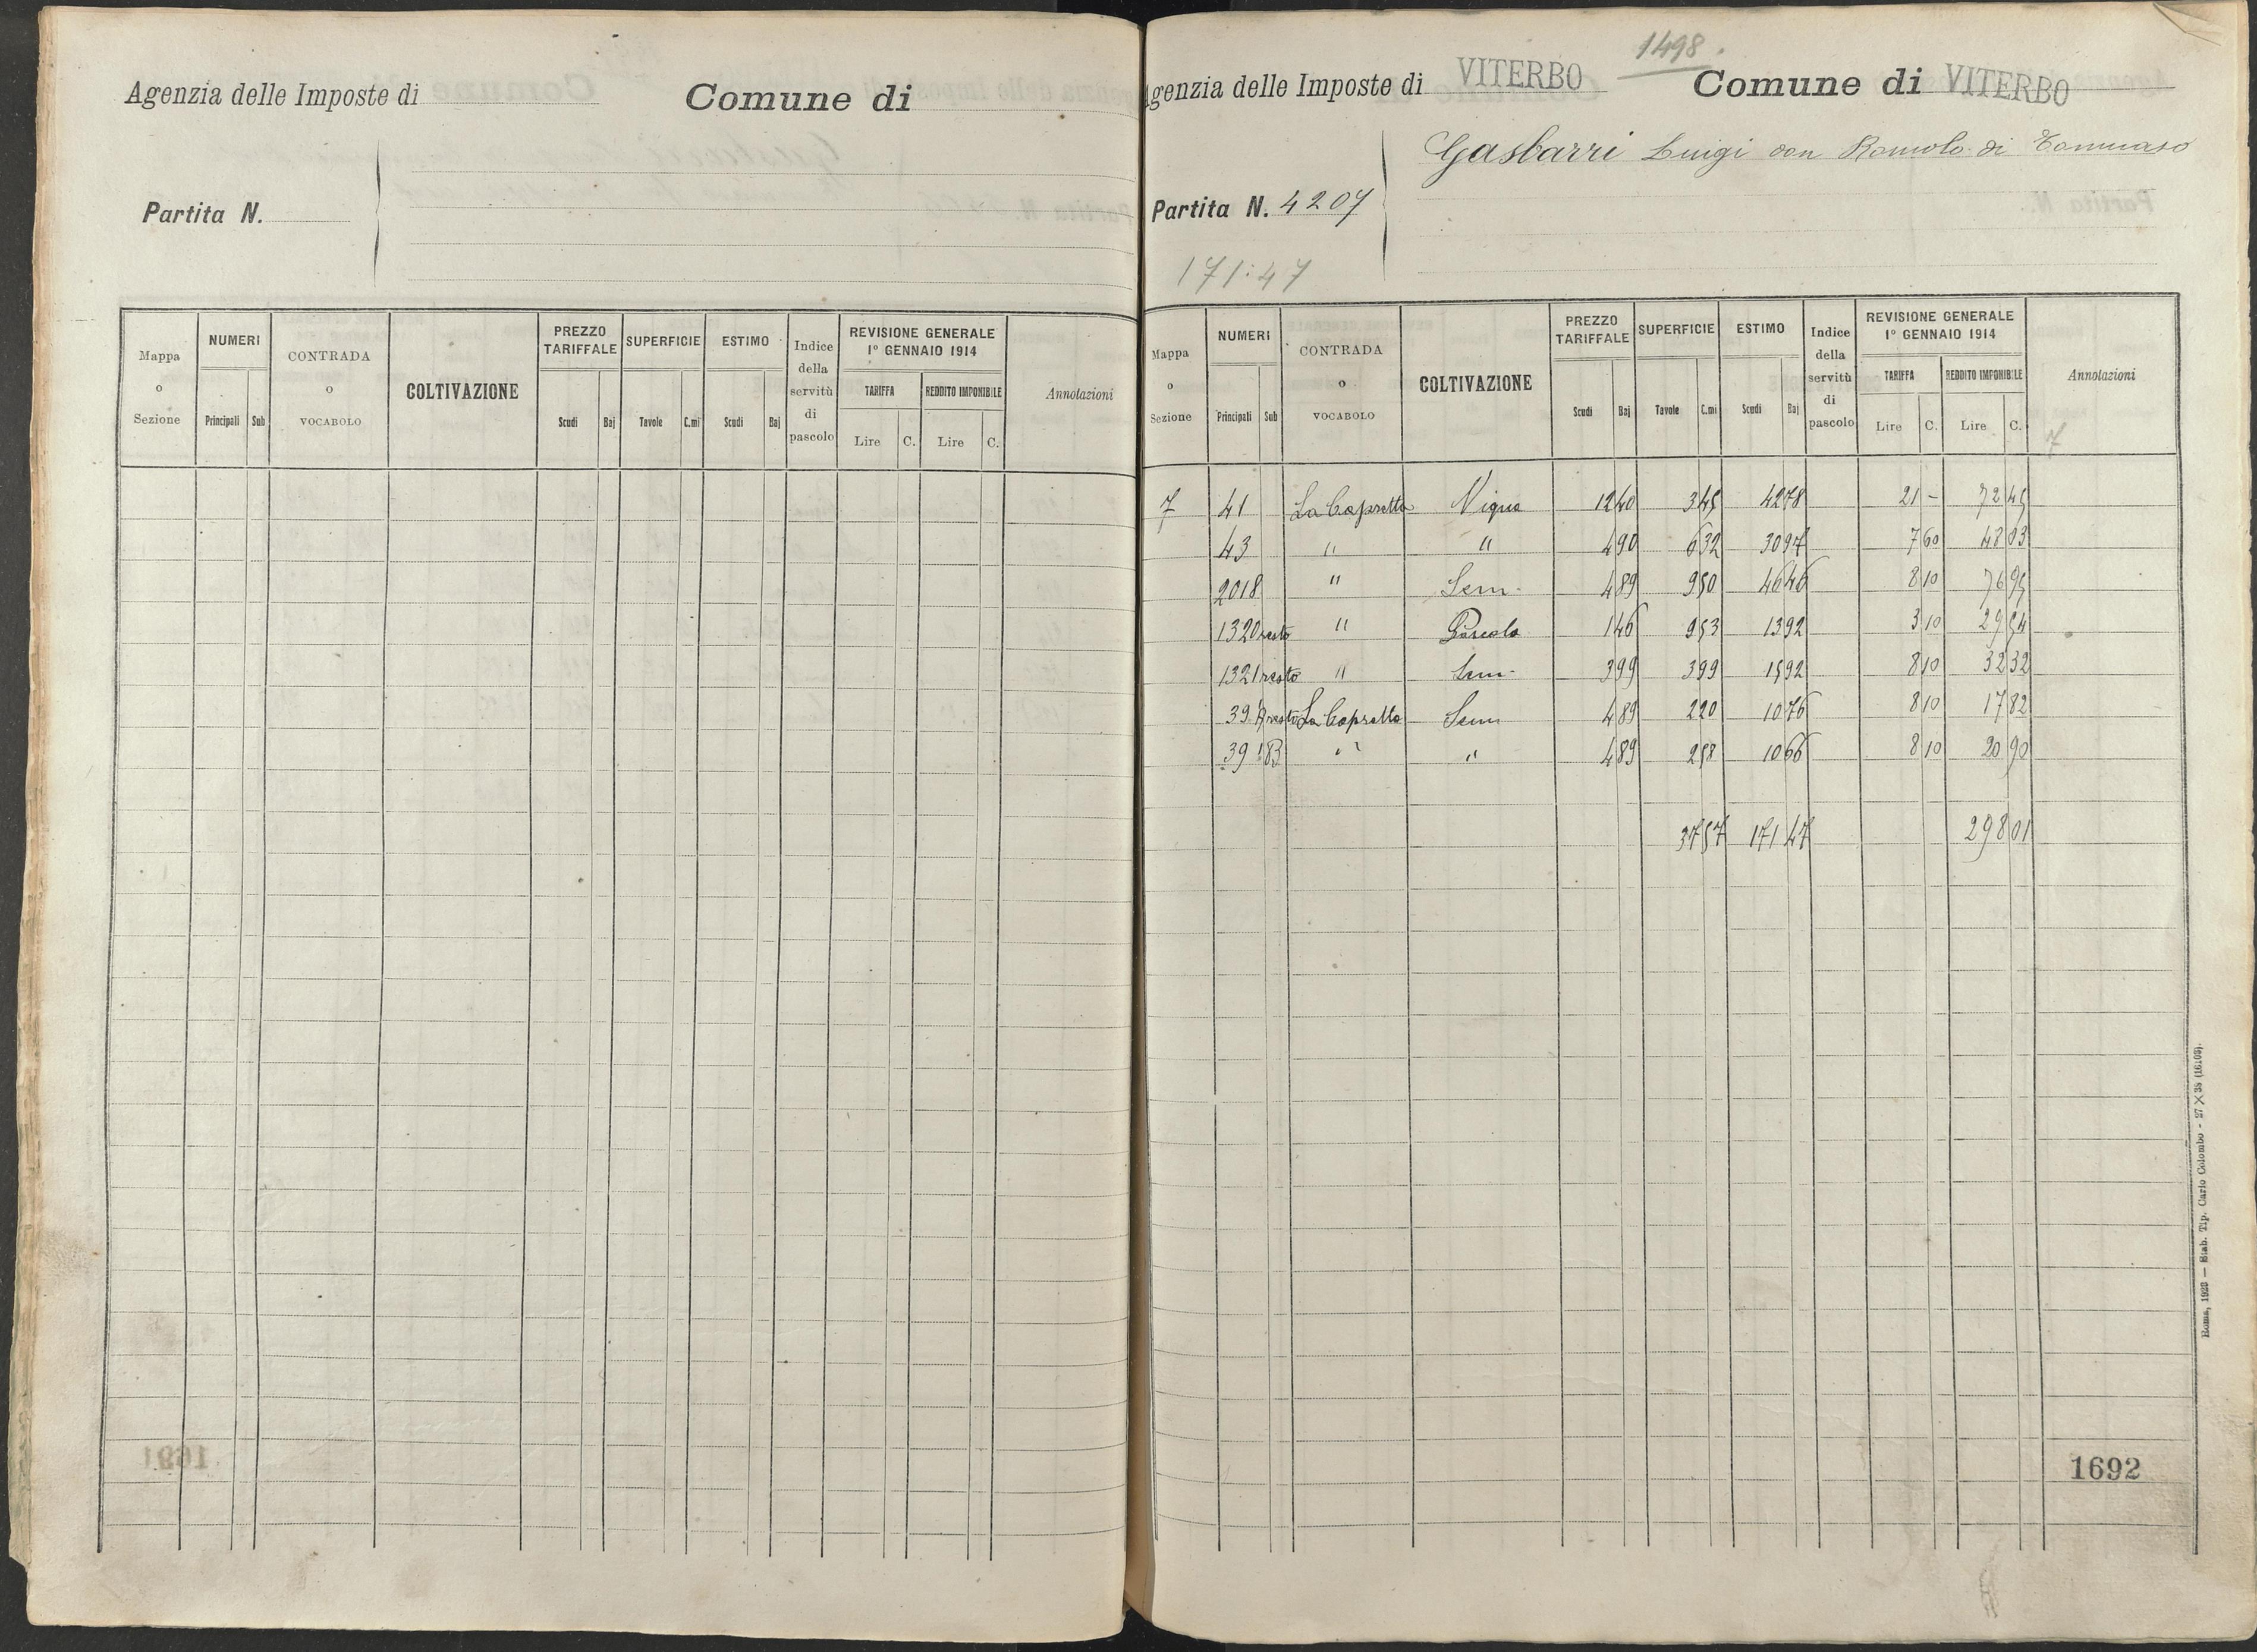 Agenzia delle Imposte di
Comune di
Partita N.
Mappa o Sezione
NUMERI
Principali Sub
CONTRADA o VOCABOLO
COLTIVAZIONE
PREZZO TARIFFALE
Scudi Baj
SUPERFICIE
Tavole C.mi
ESTIMO
Scudi Baj
Indice della servitù di pascolo
REVISIONE GENERALE
1º GENNAIO 1914
TARIFFA
Lire C.
REDDITO IMPONIBILE
Lire C.
Annotazioni
1498.
Agenzia delle Imposte di VITERBO
Comune di VITERBO
Gasbarri Luigi don Romolo di Tommaso
Partita N. 4207
171:47
Mappa o Sezione
NUMERI
Principali Sub
CONTRADA o VOCABOLO
COLTIVAZIONE
PREZZO TARIFFALE
Scudi Baj
SUPERFICIE
Tavole C.mi
ESTIMO
Scudi Baj
Indice della servitù di pascolo
REVISIONE GENERALE
1º GENNAIO 1914
TARIFFA
Lire C.
REDDITO IMPONIBILE
Lire C.
Annotazioni
7
7 41 La Capretta Vigna 12 40 3 45 42 78 21 - 72 45
43 " " 4 90 6 32 30 97 7 60 48 03
2018 " Sem. 4 89 9 50 46 46 8 10 76 95
1320 resto " Pascolo 1 46 9 53 13 92 3 10 29 54
1321 resto " Sem. 3 99 3 99 15 92 8 10 32 32
39 A resto La Capretta Sem 4 89 2 20 10 76 8 10 17 82
39 B " " 4 89 2 58 10 66 8 10 20 90
37 57 171 47 298 01
Roma, 1923 — Stab. Tip. Carlo Colombo - 27 X 38 (16103).
1692